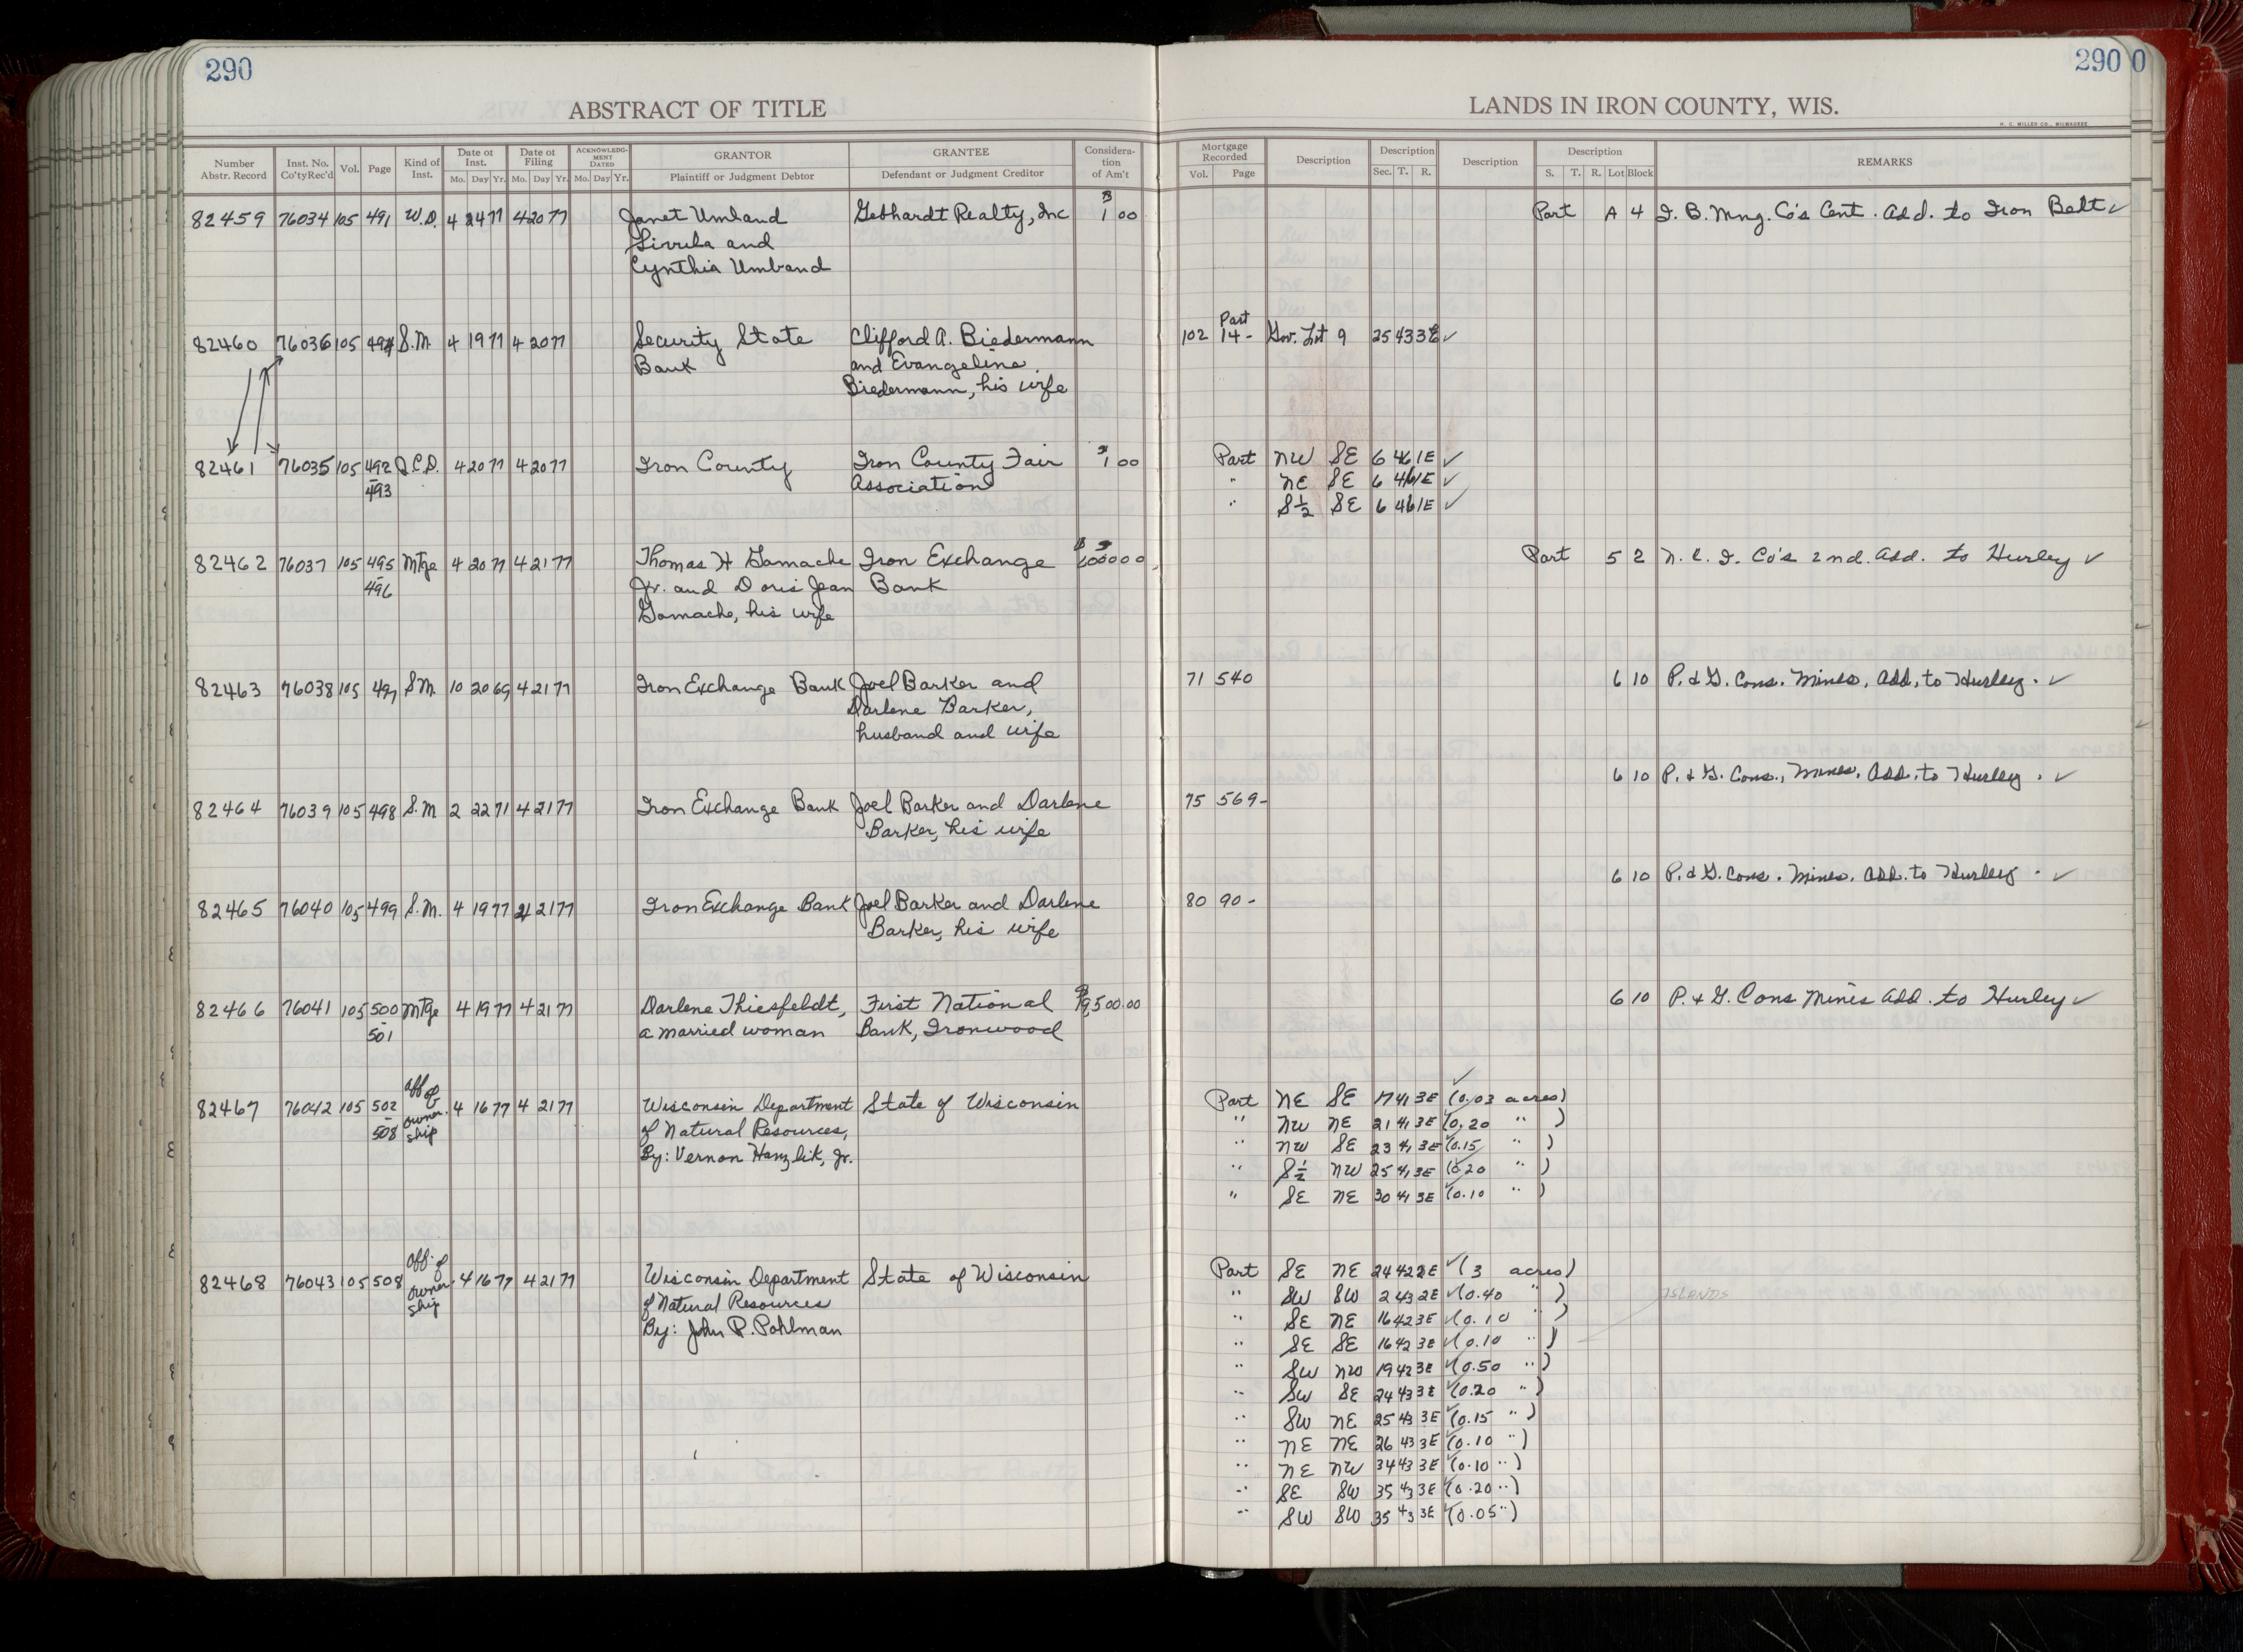 290
290 0
ABSTRACT OF TITLE
LANDS IN IRON COUNTY, WIS.
H. C. MILLER CO., MILWAUKEE
Number Abstr. Record Inst. No. Co'ty Rec'd Vol. Page Kind of Inst. Date of Inst. Mo. Day Yr. Date of Filing Mo. Day Yr. ACKNOWLEDGMENT DATED Mo. Day Yr. GRANTOR Plaintiff or Judgment Debtor GRANTEE Defendant or Judgment Creditor Consideration of Am't
Mortgage Recorded Vol. Page Description Description Sec. T. R. Description Description S. T. R. Lot Block REMARKS
82459 76034 105 491 W.D. 4 24 77 4 20 77 Janet Umland Gebhardt Realty, Inc $ 1 00 Part A 4 I. B. Mng. Co's Cent. Add. to Iron Belt ✓
and
Cynthia Umland
Part
82460 76036 105 494 S.M. 4 19 77 4 20 77 Security State Clifford A. Biedermann 102 14- Gov. Lot 9 25 43 3E ✓
Bank and Evangeline
Biedermann, his wife
82461 76035 105 492 Q.C.D. 4 20 77 4 20 77 Iron County Iron County Fair $ 1 00 Part NW SE 6 46 1E ✓
- 493 Association " NE SE 6 46 1E ✓
" S½ SE 6 46 1E ✓
82462 76037 105 495 Mtge 4 20 77 4 21 77 Thomas H Gamache Iron Exchange Part 5 2 N. L. I. Co's 2nd. Add. to Hurley ✓
- 496 Jr. and Doris Jean Bank
Gamache, his wife
82463 76038 105 497 S.M. 10 20 69 4 21 77 Iron Exchange Bank Joel Barker and 71 540 6 10 P. & G. Cons. Mines. Add. to Hurley. ✓
Darlene Barker,
husband and wife
6 10 P. & G. Cons., Mines. Add. to Hurley. ✓
82464 76039 105 498 S.M 2 22 71 4 21 77 Iron Exchange Bank Joel Barker and Darlene 75 569-
Barker, his wife
6 10 P. & G. Cons. Mines. Add. to Hurley. ✓
82465 76040 105 499 S.M. 4 19 77 4 21 77 Iron Exchange Bank Joel Barker and Darlene 80 90-
Barker, his wife
82466 76041 105 500 Mtge 4 19 77 4 21 77 Darlene Thiesfeldt, First National $19,500.00 6 10 P. & G. Cons Mines Add. to Hurley ✓
- 501 a married woman Bank, Ironwood
82467 76042 105 502 Aff of owner-ship 4 16 77 4 21 77 Wisconsin Department State of Wisconsin Part NE SE 17 41 3E (0.03 acres)
- 508 of Natural Resources, " NW NE 21 41 3E (0.20 " )
By: Vernon Hanzlik, Jr. " NW SE 23 41 3E (0.15 " )
" S½ NW 25 41 3E (0.20 " )
" SE NE 30 41 3E (0.10 " )
82468 76043 105 508 Aff. of owner-ship 4 16 77 4 21 77 Wisconsin Department State of Wisconsin Part SE NE 24 42 2E ✓ (3 acres)
of Natural Resources " SW SW 2 43 2E ✓ (0.40 " ) ISLANDS
By: John P. Pohlman " SE NE 16 42 3E ✓ (0.10 " )
" SE SE 16 42 3E ✓ (0.10 " )
" SW NW 19 42 3E ✓ (0.50 " )
" SW SE 24 43 3E ✓ (0.20 " )
" SW NE 25 43 3E (0.15 " )
" NE NE 26 43 3E (0.10 " )
" NE NW 34 43 3E (0.10 " )
" SE SW 35 43 3E (0.20 " )
" SW SW 35 43 3E (0.05 " )